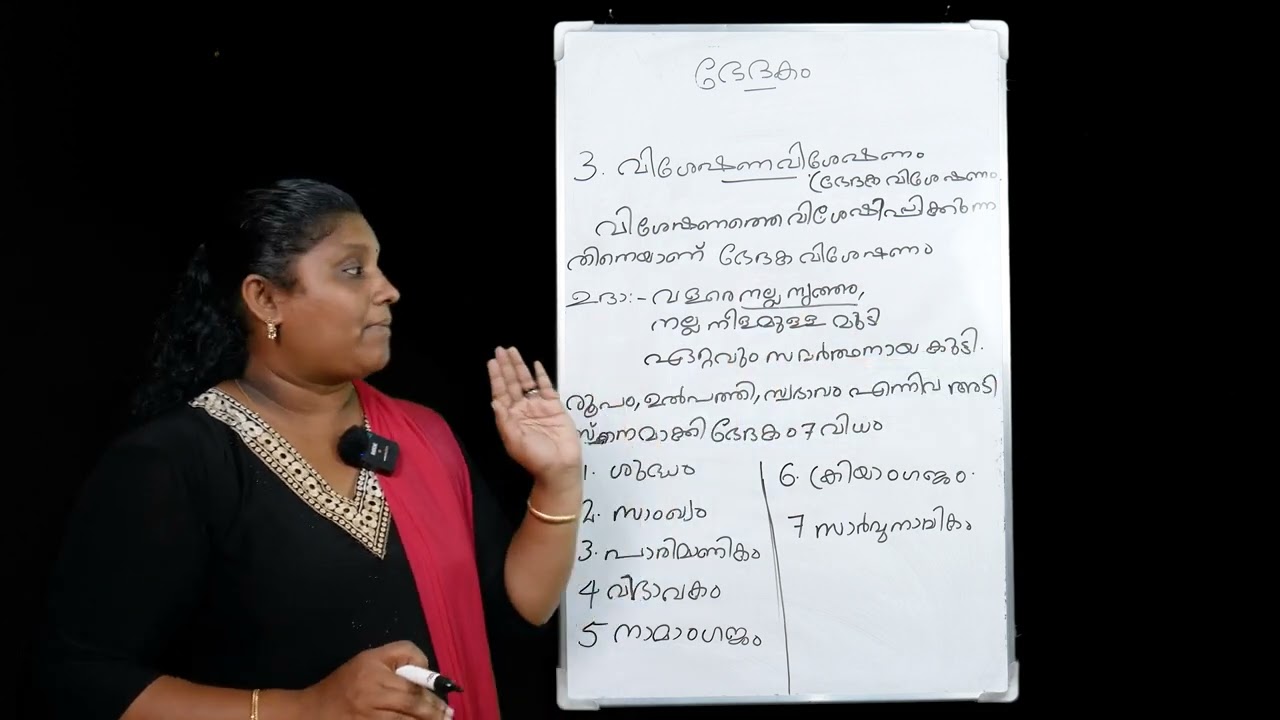 ഭേദകം
3. വിശേഷണവിശേഷണം
(ഭേദക വിശേഷണം.
വിശേഷണത്തെ വിശേഷിപ്പിക്കുന്ന
തിനെയാണ് ഭേദക വിശേഷണം
ഉദാ:- വളരെ നല്ല നൃത്തം,
നല്ല നീളമുള്ള മുടി
ഏറ്റവും സമർത്ഥനായ കുട്ടി.
രൂപം, ഉൽപത്തി, സ്വഭാവം എന്നിവ അടി
സ്ഥാനമാക്കി ഭേദകം 7 വിധം
1. ശുദ്ധം
2. സാംഖ്യം
3. പാരിമാണികം
4 വിഭാവകം
5 നാമാംഗജം
6. ക്രിയാംഗജം.
7 സാർവ്വനാമികം